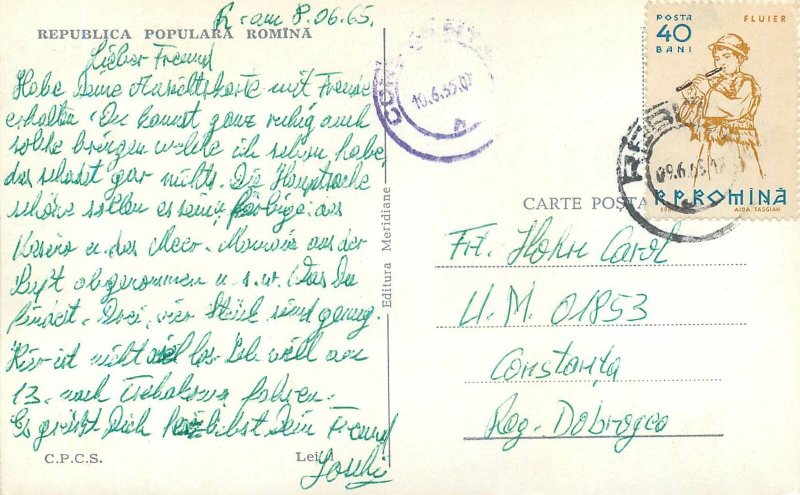 R-am 8.06.65.
REPUBLICA POPULARA ROMÎNĂ
Lieber Freund
Habe Deine Ansichtskarte mit Freude
erhalten. Du kannst ganz ruhig auch
solche bringen welche ich schon habe,
das schadet gar nichts. Die Hauptsache
schöne sollen es sein, farbige: das
Kasino u. das Meer. Mamaia aus der
Luft abgenommen u.s.w. Was Du
findest. Drei, vier Stück sind genug.
Hier ist nicht viel los. Ich will am
13. nach fahren.
Es grüßt Dich herzlichst Dein Freund
C.P.C.S.
Lei
Editura Meridiane
10.6.65.07
POSTA
40
BANI
FLUIER
09.6.65.17
R.P.ROMÎNĂ
AIDA TASGIAN
CARTE POȘTA
Frt. Hohn Carol
U.M. 01853
Constanța
Reg. Dobrogea